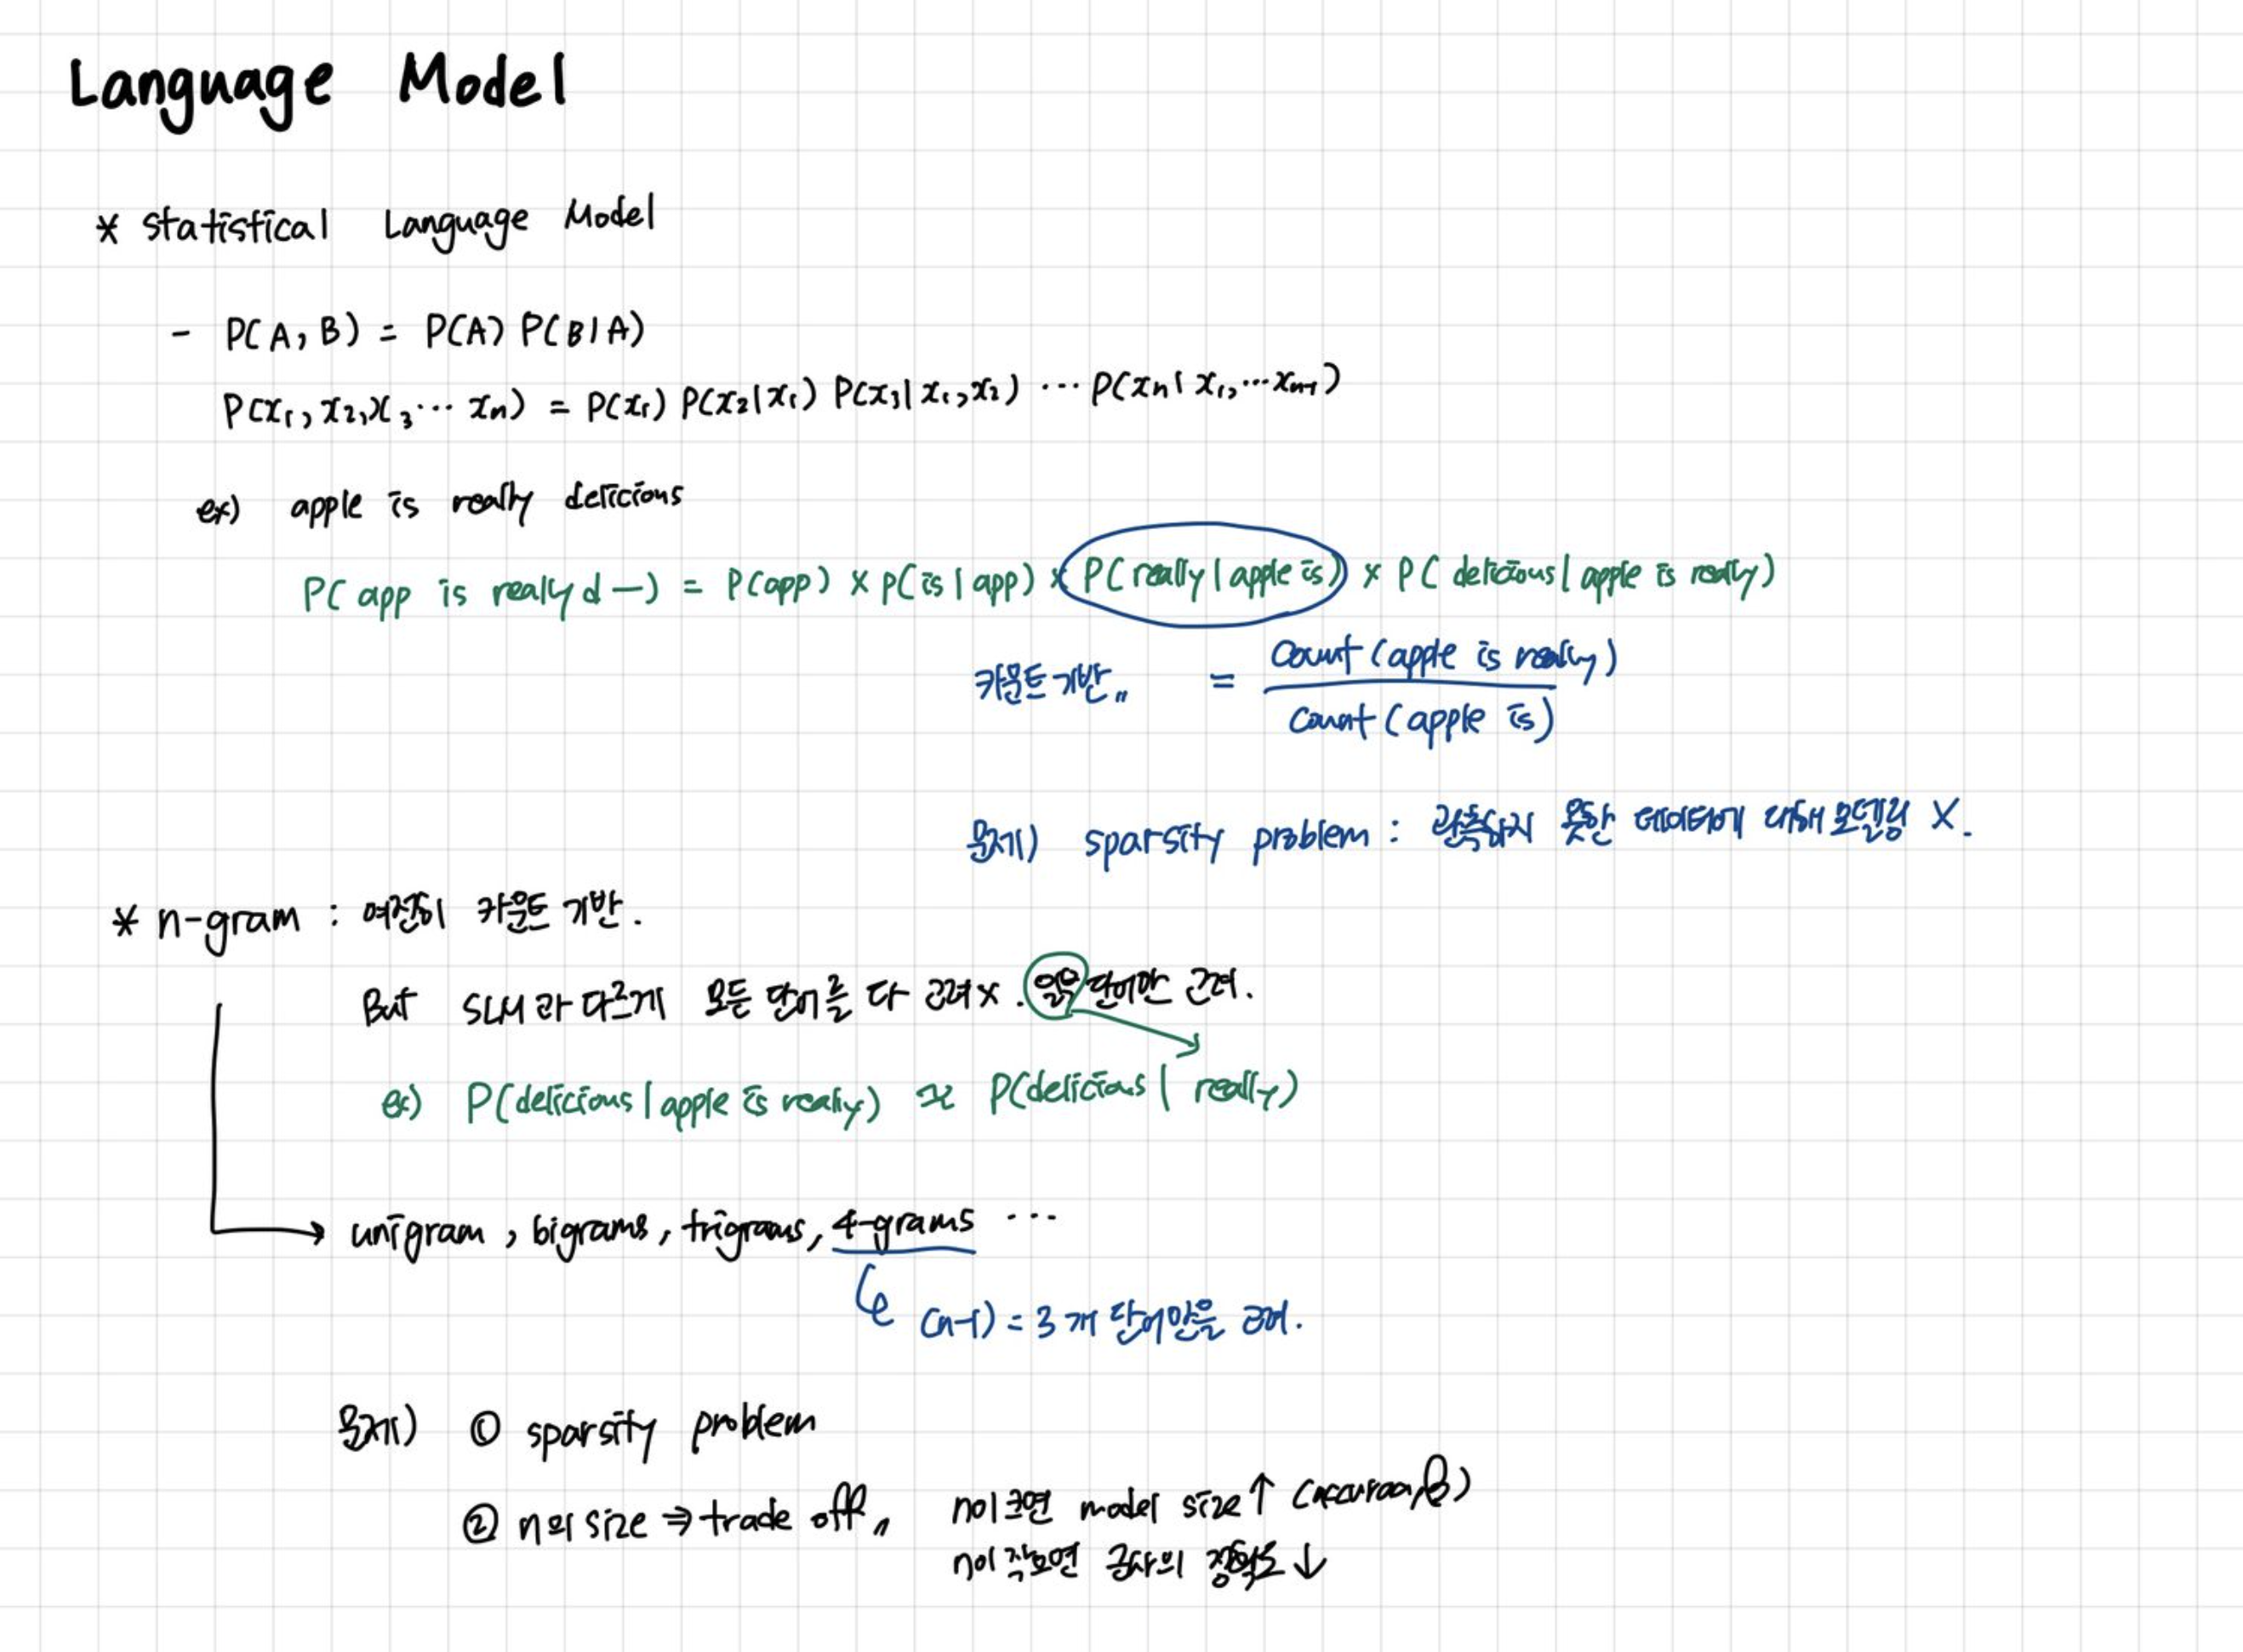 Language Model
* statistical Language Model
- P(A, B) = P(A) P(B|A)
P(x₁, x₂, x₃ ⋯ xn) = P(x₁) P(x₂|x₁) P(x₃|x₁, x₂) ⋯ P(xn|x₁, ⋯ xn-1)
ex) apple is really delicious
P(app is really d—) = P(app) × P(is|app) × P(really|apple is) × P(delicious|apple is really)
카운트 기반,, = Count(apple is really) / Count(apple is)
문제) sparsity problem : 관측하지 못한 데이터에 대해 모델링 X.
* n-gram : 여전히 카운트 기반.
But SLM과 다르게 모든 단어를 다 고려 X. 일부 단어만 고려.
ex) P(delicious|apple is really) ≈ P(delicious|really)
→ unigram, bigrams, trigrams, 4-grams ⋯
(n-1) = 3개 단어만을 고려.
문제) ① sparsity problem
② n의 size ⇒ trade off,, n이 크면 model size ↑ (accuracy
n이 작으면 근사의 정확도 ↓